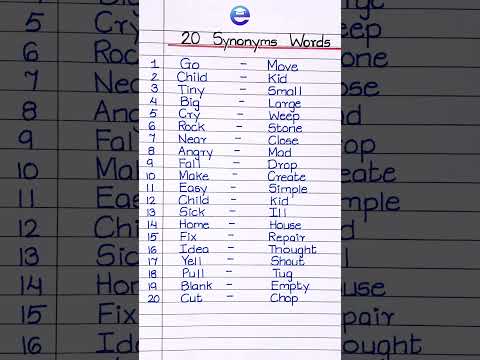 20 Synonyms Words
1 Go - Move
2 Child - Kid
3 Tiny - Small
4 Big - Large
5 Cry - Weep
6 Rock - Stone
7 Near - Close
8 Angry - Mad
9 Fall - Drop
10 Make - Create
11 Easy - Simple
12 Child - Kid
13 Sick - Ill
14 Home - House
15 Fix - Repair
16 Idea - Thought
17 Yell - Shout
18 Pull - Tug
19 Blank - Empty
20 Cut - Chop